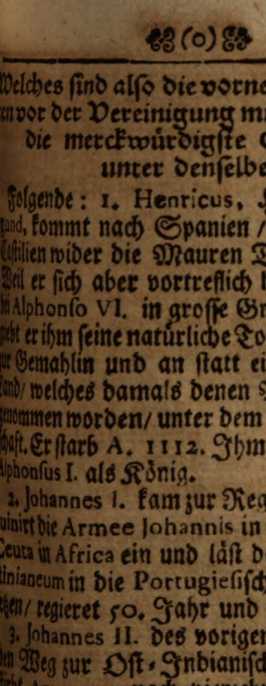 (0)
Welches sind also die vorne
vor der Vereinigung
die merckwürdigste
unter denselbe
Folgende: 1. Henricus,
kommt nach Spanien /
Castilien wider die Mauren
Weil er sich aber vortreflich
Alphonso VI. in grosse
er ihm seine natürliche
Gemahlin und an statt ei
welches damals denen
genommen worden/ unter dem
Er starb A. 1112. Ihm
Alphonsus I. als König.
2. Johannes I. kam zur Reg
die Armee Johannis in
Ceuta in Africa ein und läst d
in die Portugiesisch
regieret 50. Jahr und
3. Johannes II. des vorigen
Weg zur Ost-Indianisch